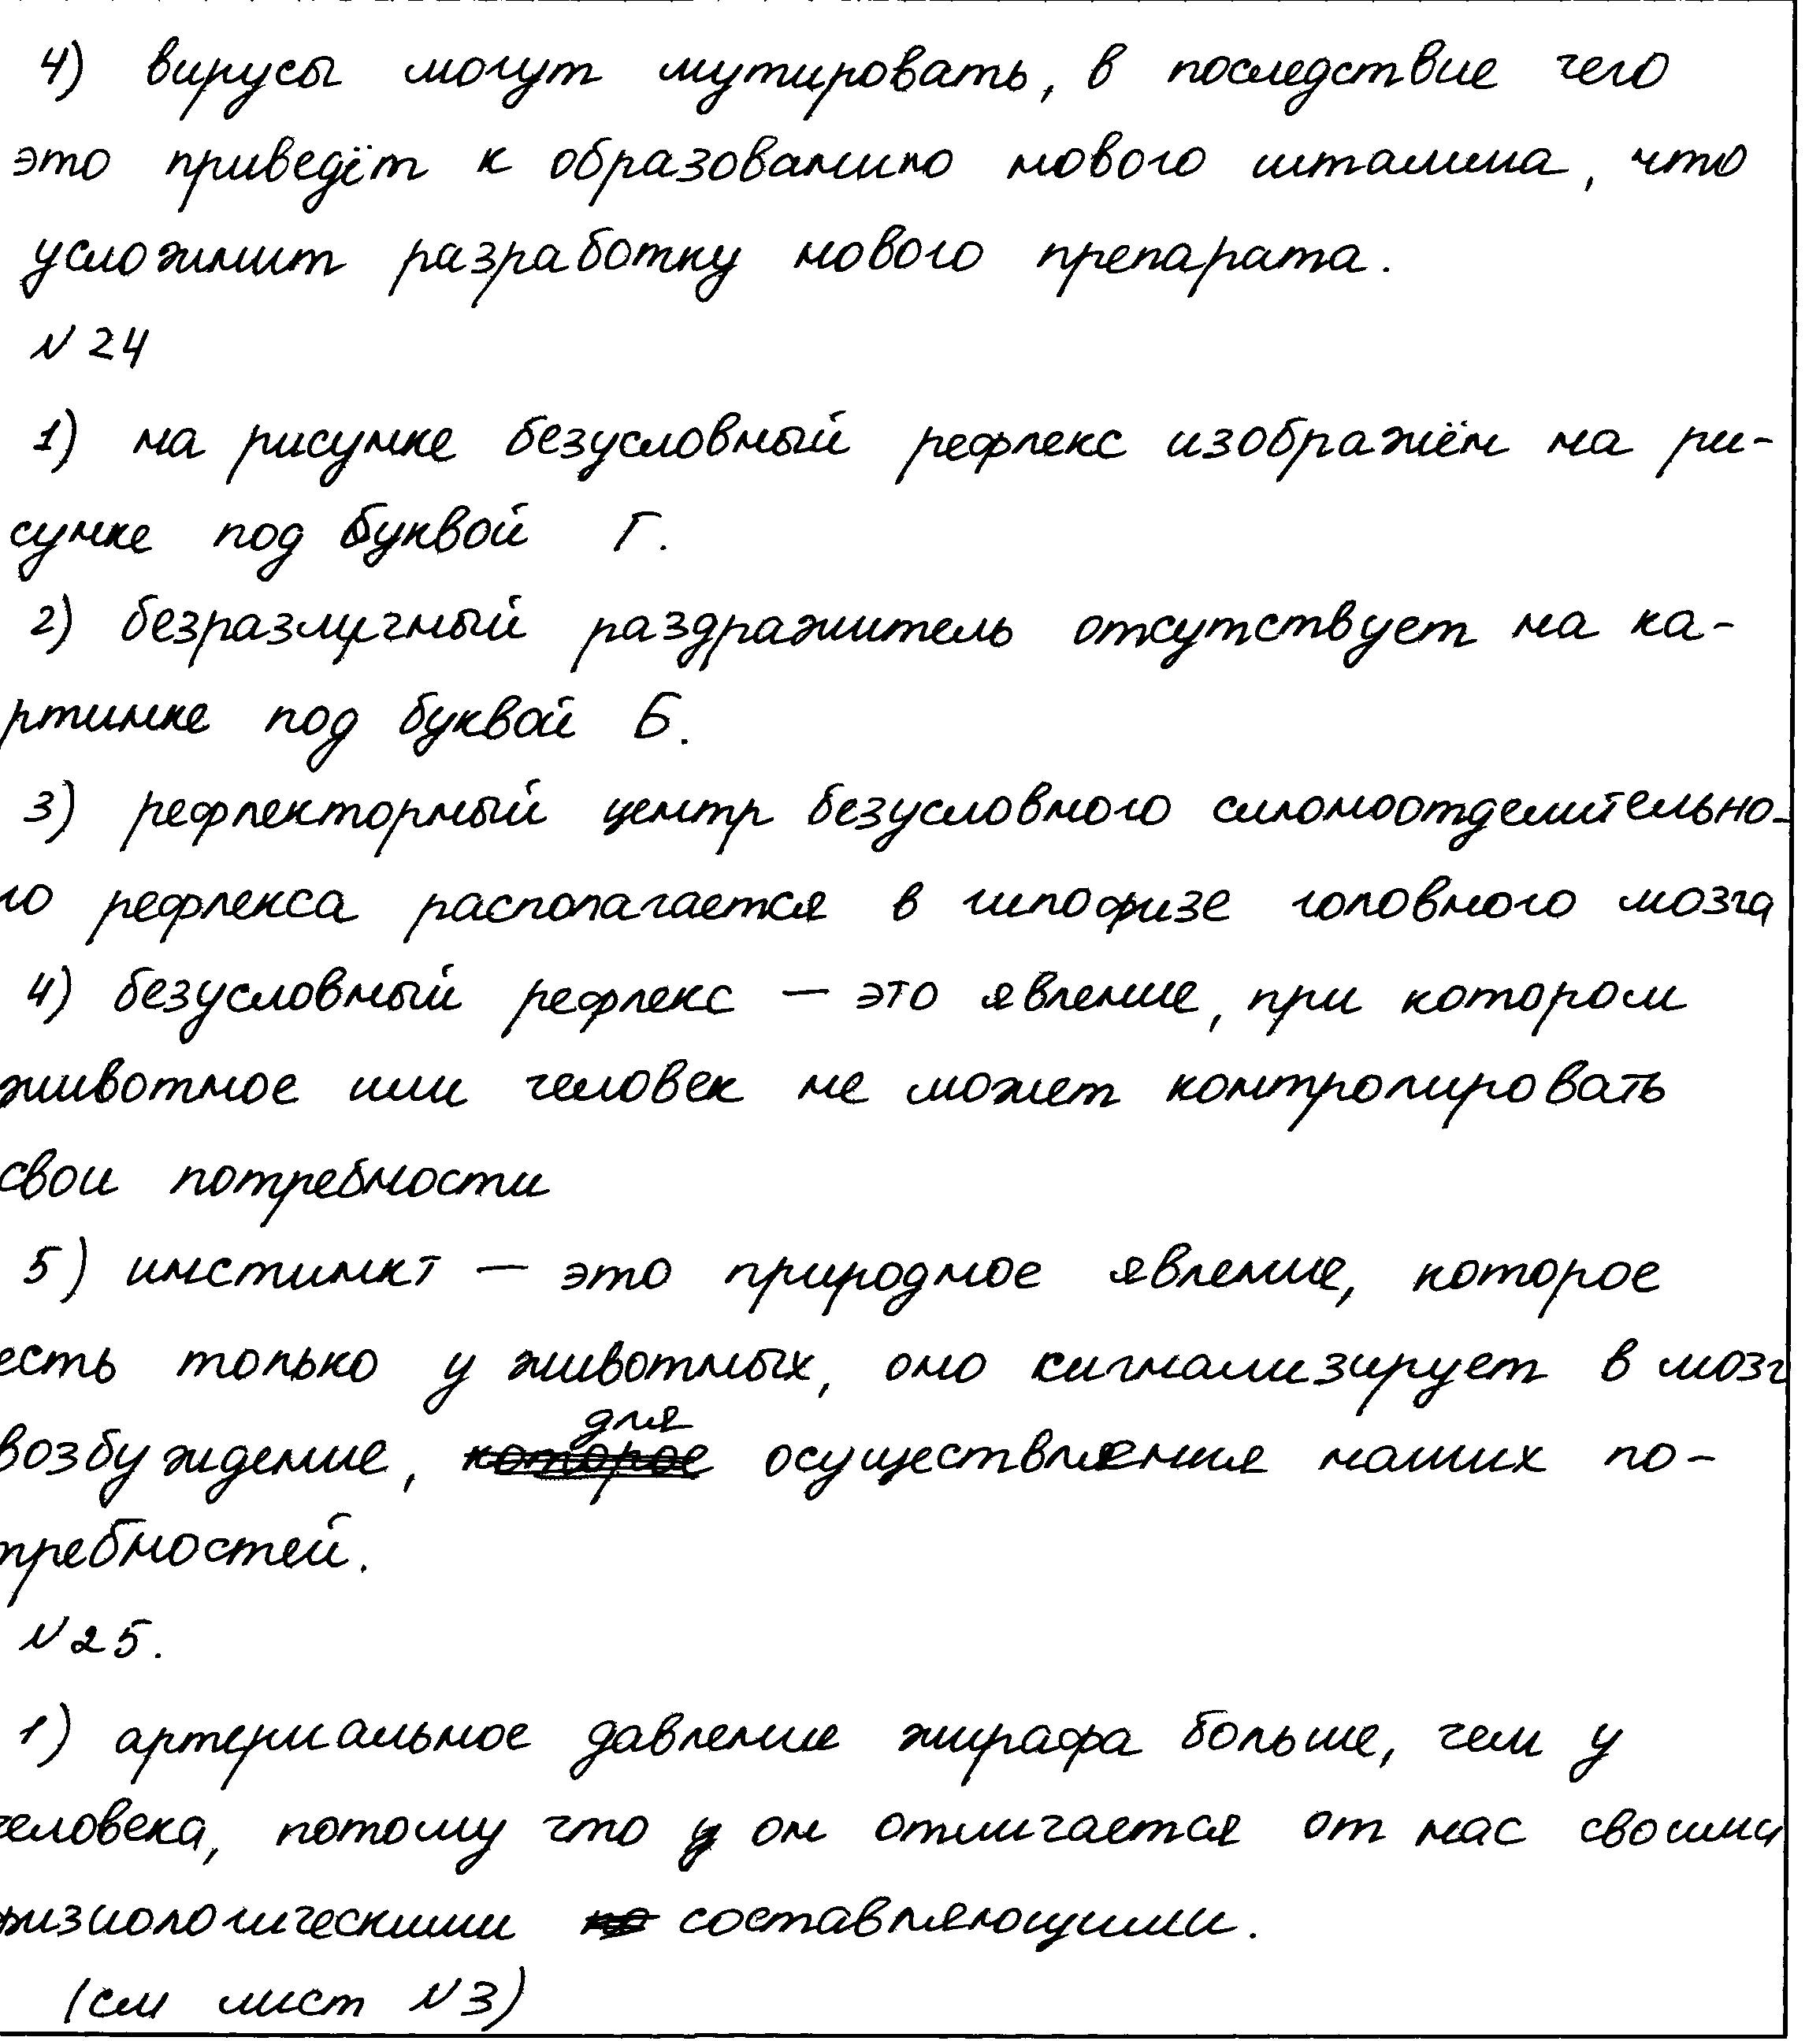 4) вирусы могут мутировать, в последствие чего
это приведёт к образованию нового штамма, что
усложнит разработку нового препарата.
N 24
1) на рисунке безусловный рефлекс изображён на ри-
сунке под буквой Г.
2) безразличный раздражитель отсутствует на ка-
ртинке под буквой Б.
3) рефлекторный центр безусловного слюноотделительно-
го рефлекса располагается в гипофизе головного мозга
4) безусловный рефлекс — это явление, при котором
животное или человек не может контролировать
свои потребности
5) инстинкт — это природное явление, которое
есть только у животных, оно сигнализирует в мозг
возбуждение, для осуществления наших по-
требностей.
N25.
1) артериальное давление жирафа больше, чем у
человека, потому что он отличается от нас своими
физиологическими составляющими.
(см лист N3)